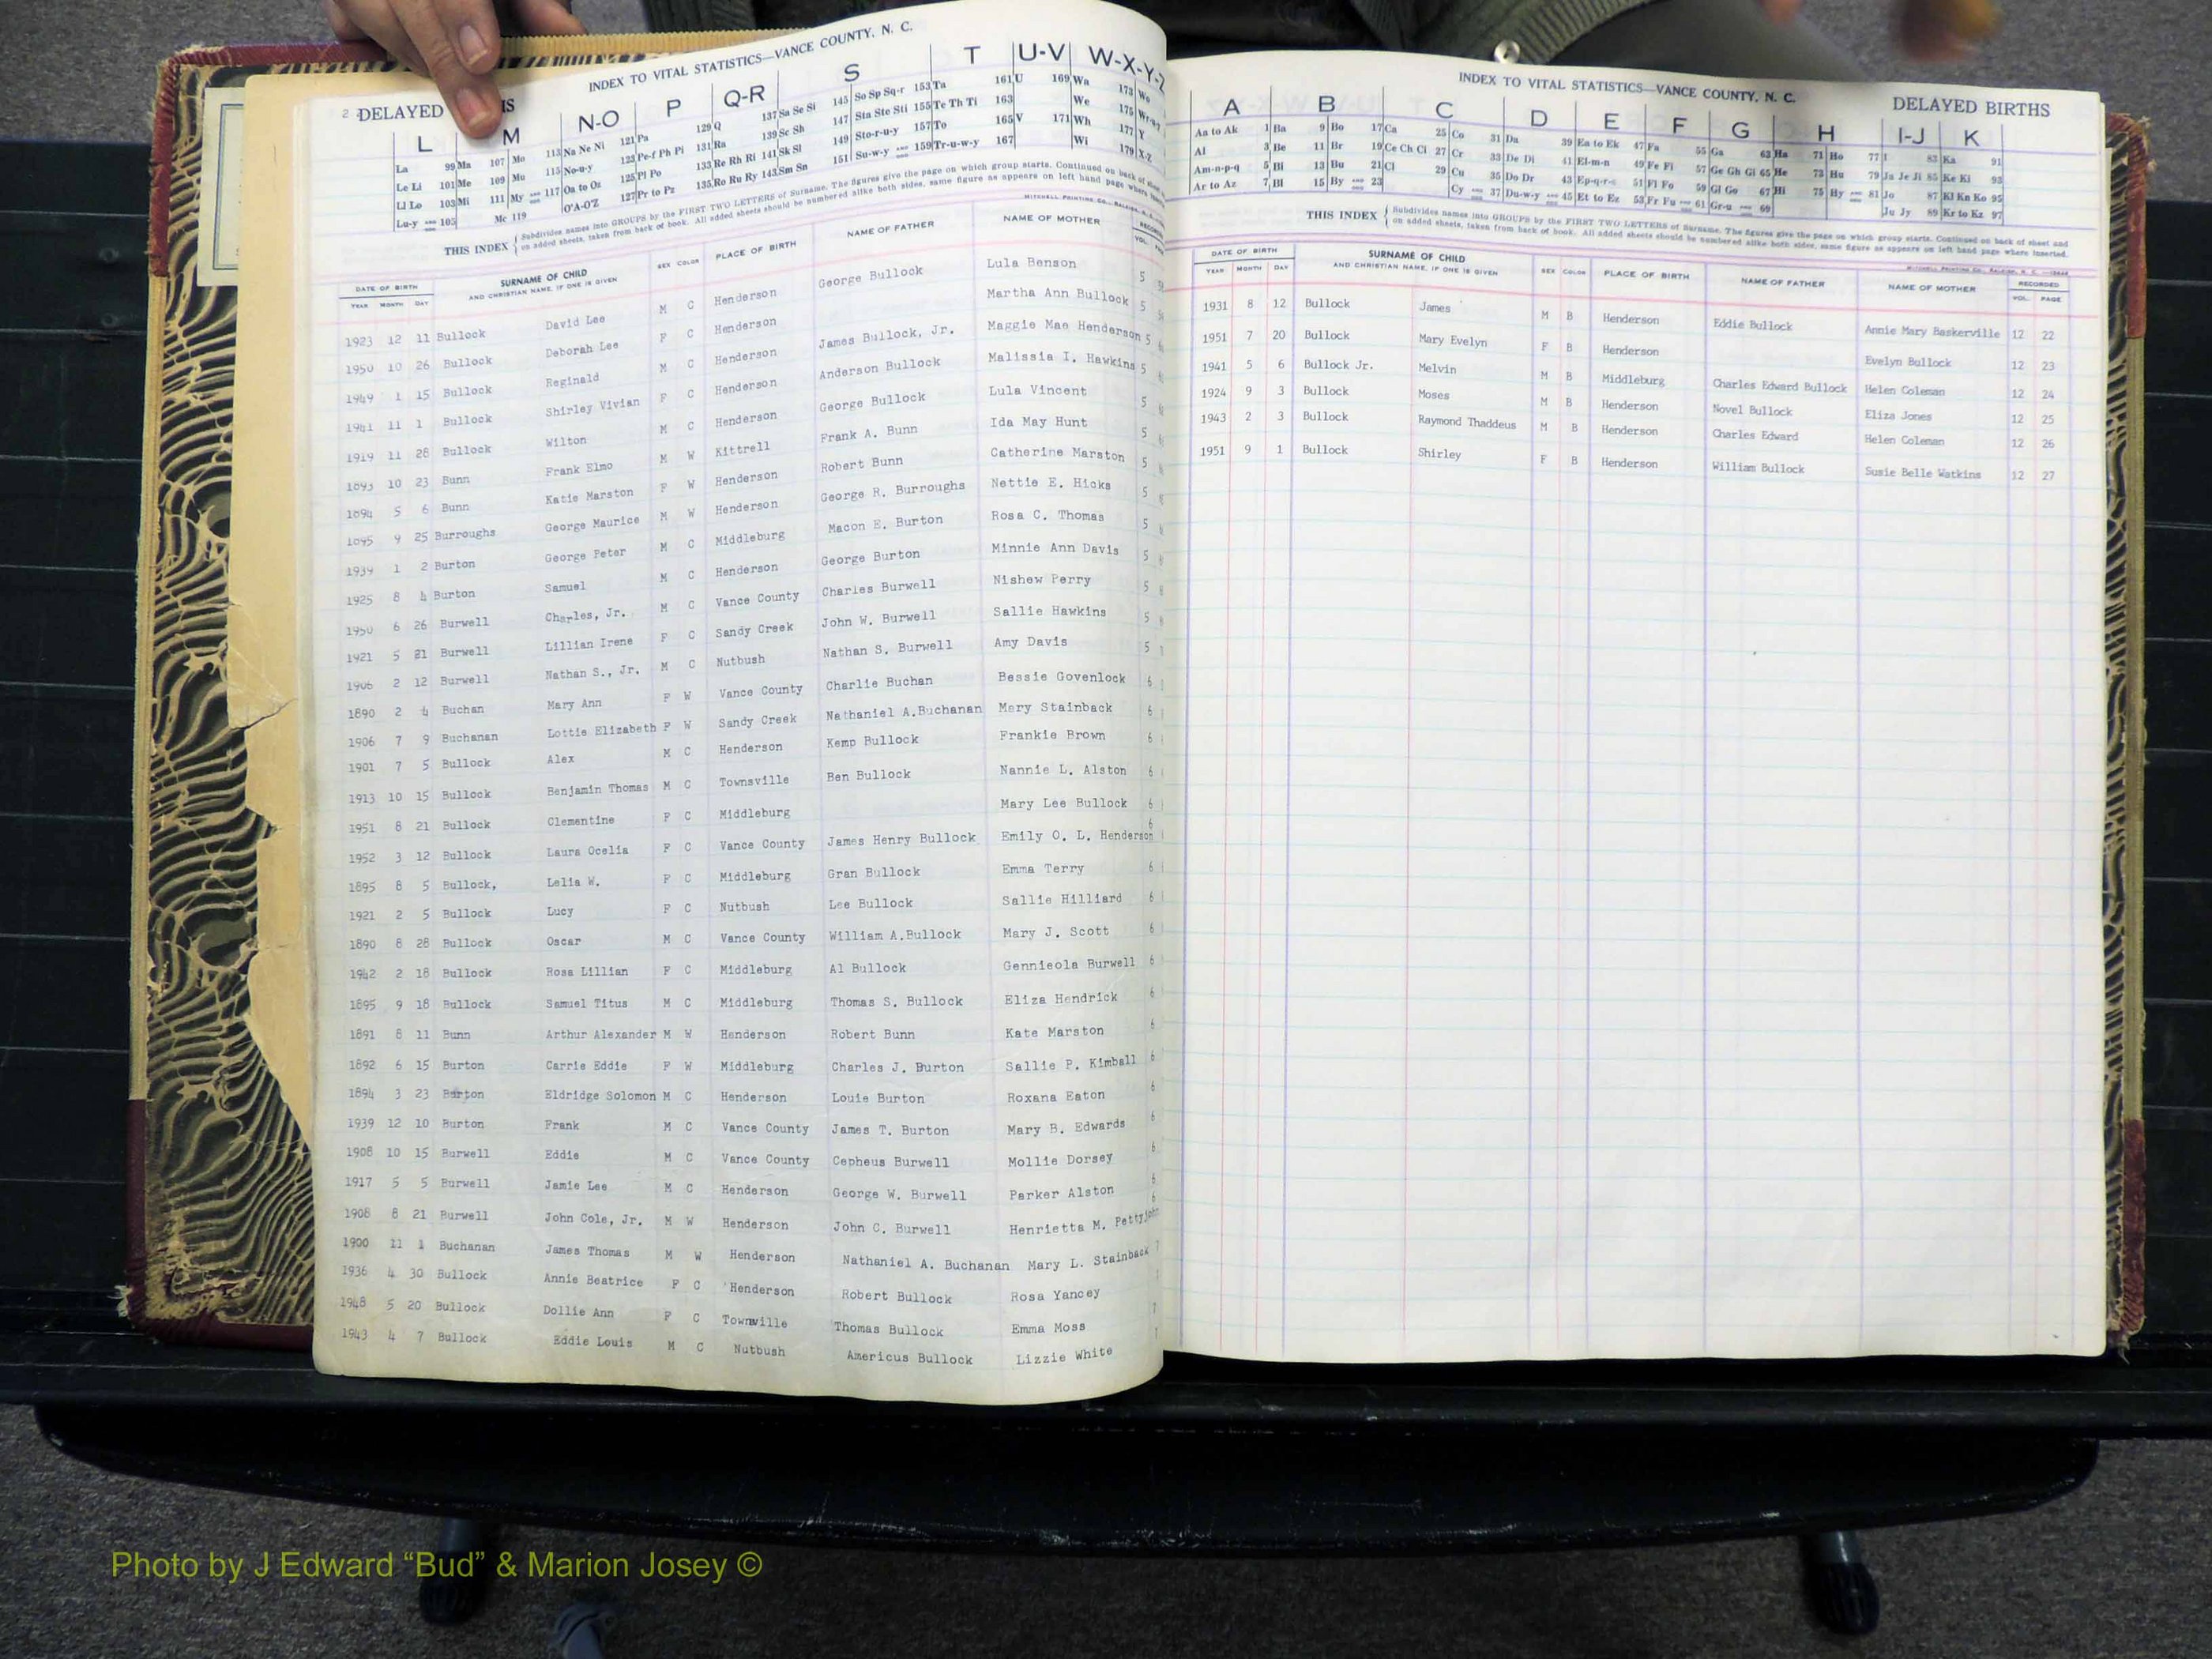 2 DELAYED
INDEX TO VITAL STATISTICS—VANCE COUNTY, N. C.
L M N-O P Q-R S T U-V W-X-Y-Z
La 99 Ma 107 Mo 113 Na Ne Ni 121 Pa 129 Q 137 Sa Se Si 145 So Sp Sq-r 153 Ta 161 U 169 Wa 173 Wo
Le Li 101 Me 109 Mu 115 No-u-y 123 Pe-f Ph Pi 131 Ra 139 Sc Sh 147 Sta Ste Sti 155 Te Th Ti 163 We 175
Ll Lo 103 Mi 111 My 117 Oa to Oz 125 Pl Po 133 Re Rh Ri 141 Sk Sl 149 Sto-r-u-y 157 To 165 V 171 Wh 177 Y
Lu-y 105 Mc 119 O'A-O'Z 127 Pr to Pz 135 Ro Ru Ry 143 Sm Sn 151 Su-w-y 159 Tr-u-w-y 167 Wi 179 X-Z
THIS INDEX Subdivides names into GROUPS by the FIRST TWO LETTERS of Surname. The figures give the page on which group starts. Continued on back of
on added sheets, taken from back of book. All added sheets should be numbered alike both sides, same figure as appears on left hand page where
DATE OF BIRTH SURNAME OF CHILD SEX COLOR PLACE OF BIRTH NAME OF FATHER NAME OF MOTHER
YEAR MONTH DAY AND CHRISTIAN NAME, IF ONE IS GIVEN VOL.
1923 12 11 Bullock David Lee M C Henderson George Bullock Lula Benson 5
1950 10 26 Bullock Deborah Lee F C Henderson Martha Ann Bullock 5
1949 1 15 Bullock Reginald M C Henderson James Bullock, Jr. Maggie Mae Henderson 5
1941 11 1 Bullock Shirley Vivian F C Henderson Anderson Bullock Malissia I. Hawkins 5
1919 11 28 Bullock Wilton M C Henderson George Bullock Lula Vincent 5
1893 10 23 Bunn Frank Elmo M W Kittrell Frank A. Bunn Ida May Hunt 5
1894 5 6 Bunn Katie Marston F W Henderson Robert Bunn Catherine Marston 5
1895 9 25 Burroughs George Maurice M W Henderson George R. Burroughs Nettie E. Hicks 5
1939 1 2 Burton George Peter M C Middleburg Macon E. Burton Rosa C. Thomas 5
1925 8 4 Burton Samuel M C Henderson George Burton Minnie Ann Davis 5
1950 6 26 Burwell Charles, Jr. M C Vance County Charles Burwell Nishew Perry 5
1921 5 21 Burwell Lillian Irene F C Sandy Creek John W. Burwell Sallie Hawkins 5
1906 2 12 Burwell Nathan S., Jr. M C Nutbush Nathan S. Burwell Amy Davis 5
1890 2 4 Buchan Mary Ann F W Vance County Charlie Buchan Bessie Govenlock 6
1906 7 9 Buchanan Lottie Elizabeth F W Sandy Creek Nathaniel A.Buchanan Mary Stainback 6
1901 7 5 Bullock Alex M C Henderson Kemp Bullock Frankie Brown 6
1913 10 15 Bullock Benjamin Thomas M C Townsville Ben Bullock Nannie L. Alston 6
1951 8 21 Bullock Clementine F C Middleburg Mary Lee Bullock 6
1952 3 12 Bullock Laura Ocelia F C Vance County James Henry Bullock Emily O. L. Henderson 6
1895 8 5 Bullock, Lelia W. F C Middleburg Gran Bullock Emma Terry 6
1921 2 5 Bullock Lucy F C Nutbush Lee Bullock Sallie Hilliard 6
1890 8 28 Bullock Oscar M C Vance County William A.Bullock Mary J. Scott 6
1942 2 18 Bullock Rosa Lillian F C Middleburg Al Bullock Gennieola Burwell 6
1895 9 18 Bullock Samuel Titus M C Middleburg Thomas S. Bullock Eliza Hendrick 6
1891 8 11 Bunn Arthur Alexander M W Henderson Robert Bunn Kate Marston 6
1892 6 15 Burton Carrie Eddie F W Middleburg Charles J. Burton Sallie P. Kimball 6
1894 3 23 Burton Eldridge Solomon M C Henderson Louie Burton Roxana Eaton 6
1939 12 10 Burton Frank M C Vance County James T. Burton Mary B. Edwards 6
1908 10 15 Burwell Eddie M C Vance County Cepheus Burwell Mollie Dorsey 6
1917 5 5 Burwell Jamie Lee M C Henderson George W. Burwell Parker Alston 6
1908 8 21 Burwell John Cole, Jr. M W Henderson John C. Burwell Henrietta M. Pettyjohn 6
1900 11 1 Buchanan James Thomas M W Henderson Nathaniel A. Buchanan Mary L. Stainback 7
1936 4 30 Bullock Annie Beatrice F C Henderson Robert Bullock Rosa Yancey
1948 5 20 Bullock Dollie Ann F C Townville Thomas Bullock Emma Moss 7
1943 4 7 Bullock Eddie Louis M C Nutbush Americus Bullock Lizzie White 7
INDEX TO VITAL STATISTICS—VANCE COUNTY, N. C. DELAYED BIRTHS
A B C D E F G H I-J K
Aa to Ak 1 Ba 9 Bo 17 Ca 25 Co 31 Da 39 Ea to Ek 47 Fa 55 Ga 63 Ha 71 Ho 77 I 83 Ka 91
Al 3 Be 11 Br 19 Ce Ch Ci 27 Cr 33 De Di 41 El-m-n 49 Fe Fi 57 Ge Gh Gi 65 He 73 Hu 79 Ja Je Ji 85 Ke Ki 93
Am-n-p-q 5 Bi 13 Bu 21 Cl 29 Cu 35 Do Dr 43 Ep-q-r-s 51 Fl Fo 59 Gl Go 67 Hi 75 Hy 81 Jo 87 Kl Kn Ko 95
Ar to Az 7 Bl 15 By 23 Cy 37 Du-w-y 45 Et to Ez 53 Fr Fu 61 Gr-u 69 Ju Jy 89 Kr to Kz 97
THIS INDEX Subdivides names into GROUPS by the FIRST TWO LETTERS of Surname. The figures give the page on which group starts. Continued on back of sheet and
on added sheets, taken from back of book. All added sheets should be numbered alike both sides, same figure as appears on left hand page where inserted.
DATE OF BIRTH SURNAME OF CHILD SEX COLOR PLACE OF BIRTH NAME OF FATHER NAME OF MOTHER RECORDED
YEAR MONTH DAY AND CHRISTIAN NAME, IF ONE IS GIVEN VOL. PAGE
1931 8 12 Bullock James M B Henderson Eddie Bullock Annie Mary Baskerville 12 22
1951 7 20 Bullock Mary Evelyn F B Henderson Evelyn Bullock 12 23
1941 5 6 Bullock Jr. Melvin M B Middleburg Charles Edward Bullock Helen Coleman 12 24
1924 9 3 Bullock Moses M B Henderson Novel Bullock Eliza Jones 12 25
1943 2 3 Bullock Raymond Thaddeus M B Henderson Charles Edward Helen Coleman 12 26
1951 9 1 Bullock Shirley F B Henderson William Bullock Susie Belle Watkins 12 27
Photo by J Edward “Bud” & Marion Josey ©